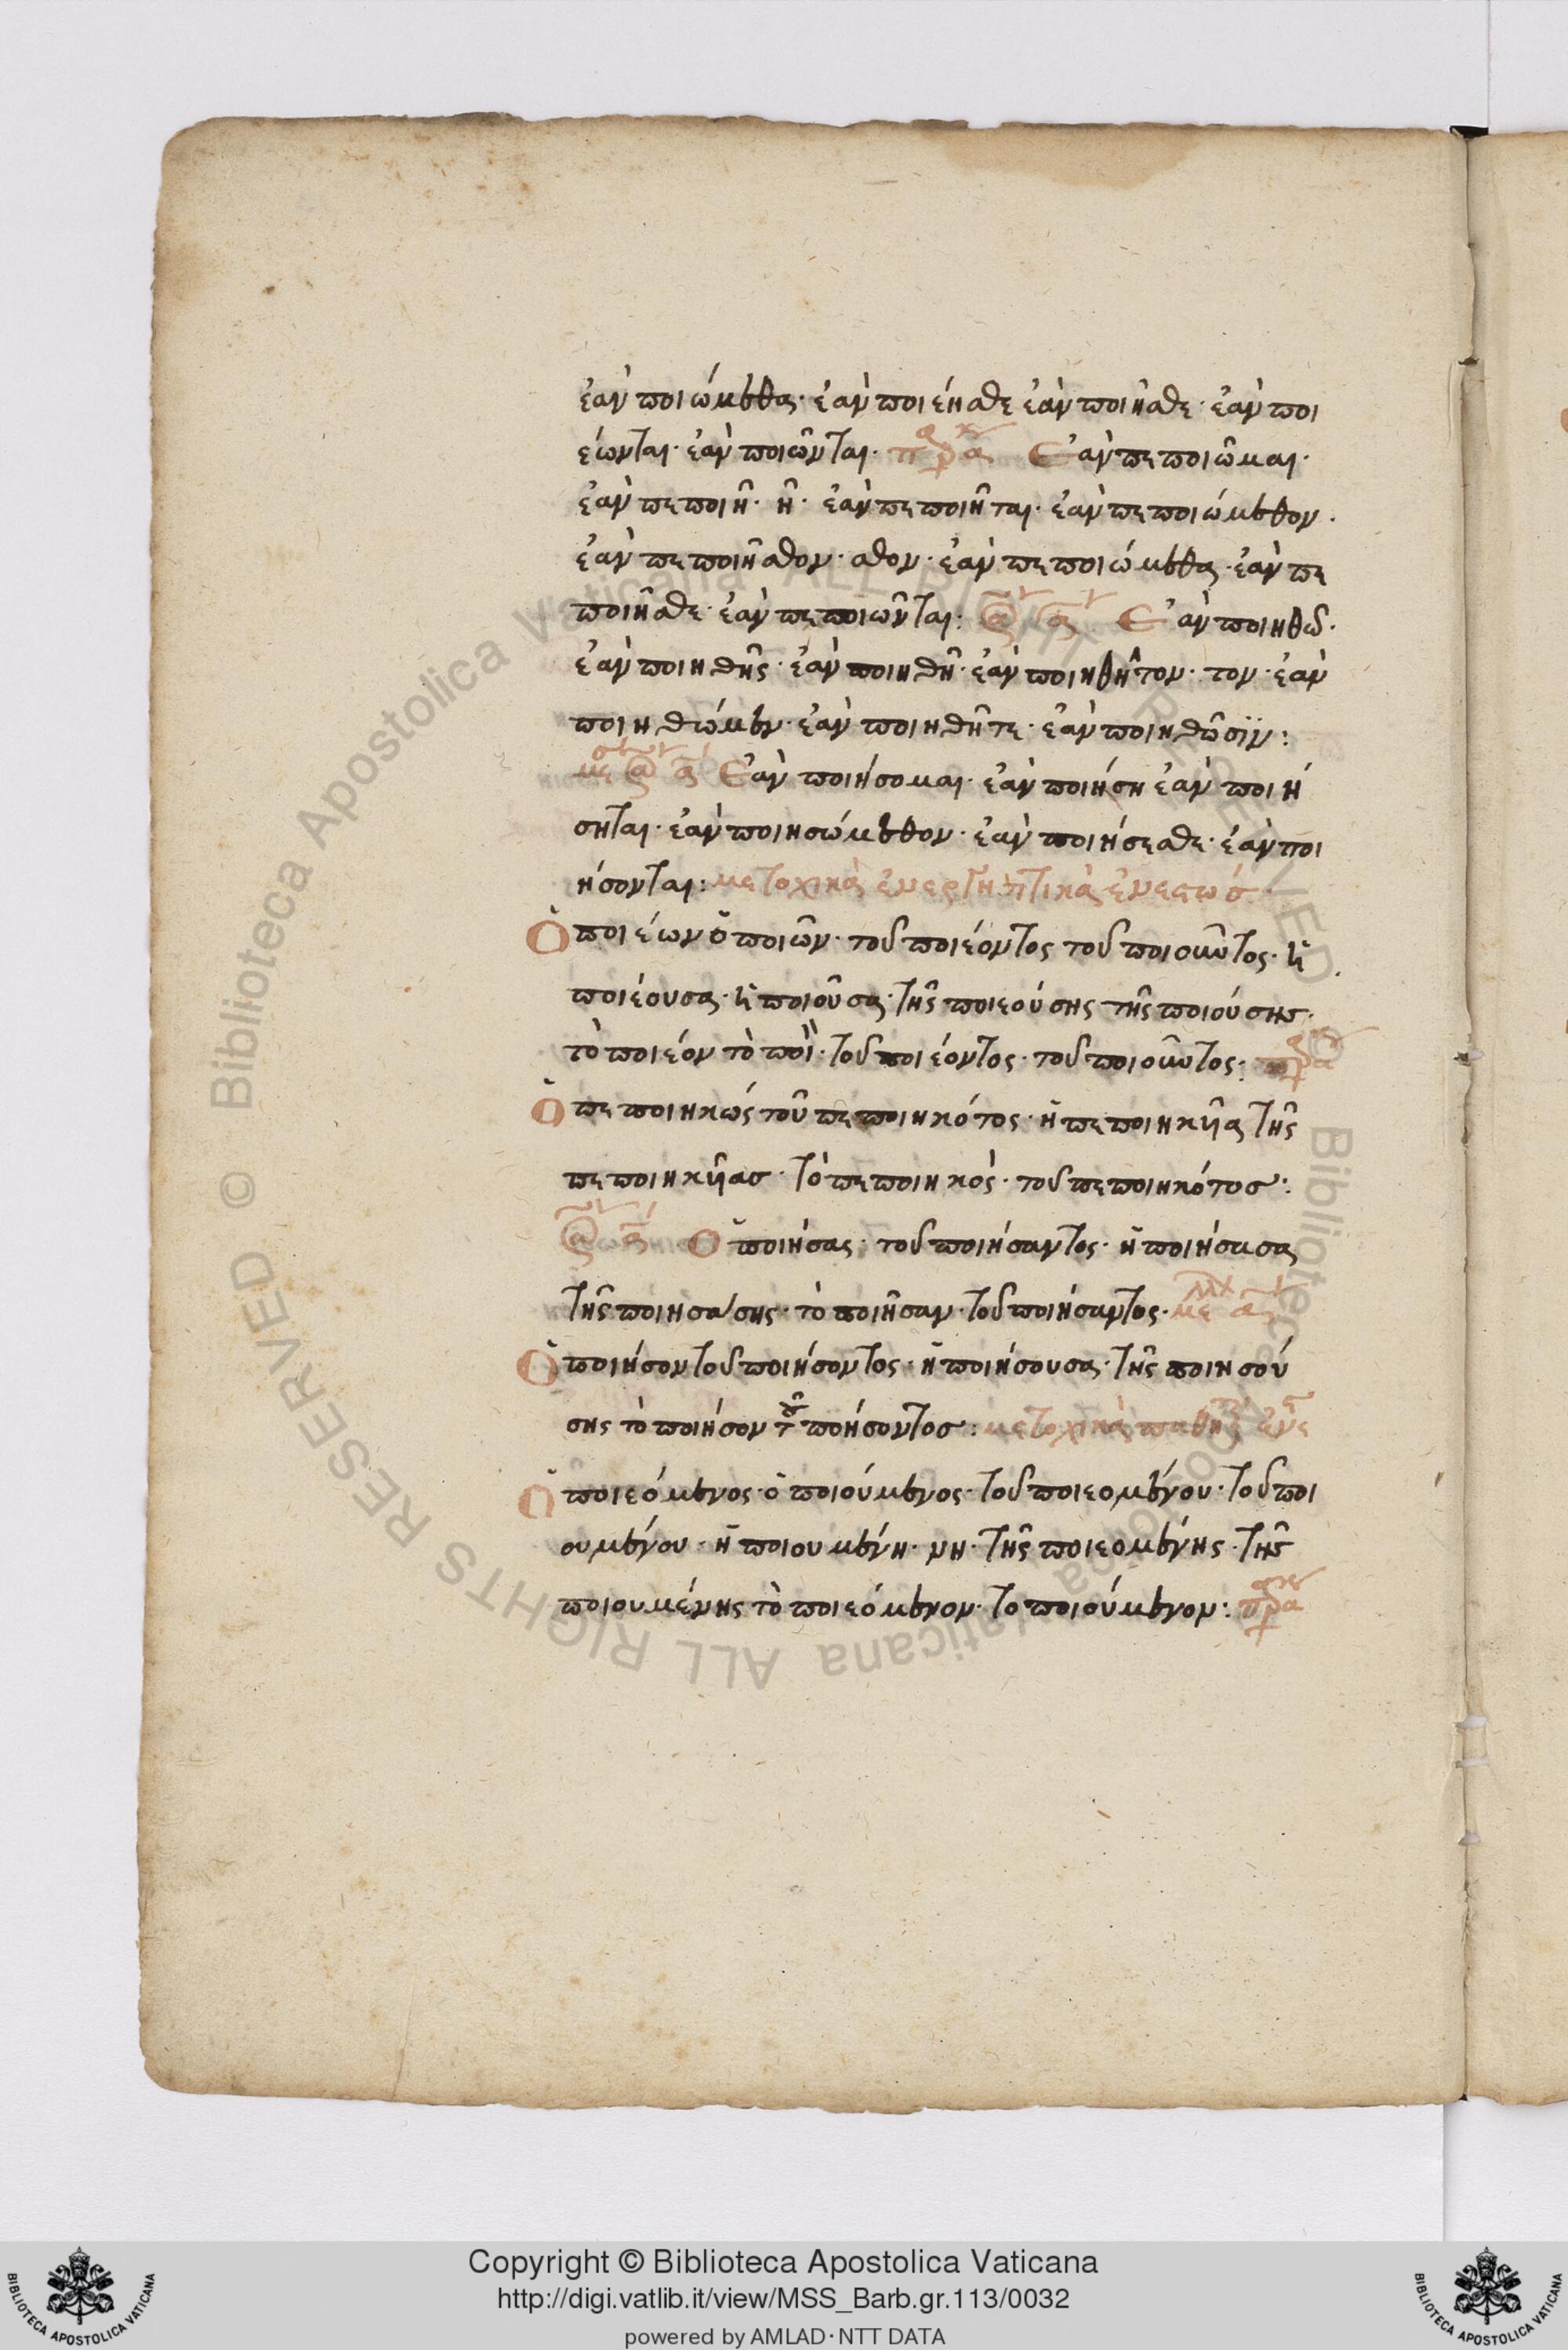 ἐὰν ποιώμεθα· ἐὰν ποιέησθε ἐὰν ποιῆσθε· ἐὰν ποι
έωνται· ἐὰν ποιῶνται· Ἐὰν πεποιῶμαι·
ἐὰν πεποιῆ· ῆ· ἐὰν πεποιῆται· ἐὰν πεποιώμεθον·
ἐὰν πεποιῆσθον· σθον· ἐὰν πεποιώμεθα· ἐὰν πε
ποιῆσθε· ἐὰν πεποιῶνται: Ἐὰν ποιηθῶ·
ἐὰν ποιηθῆς· ἐὰν ποιηθῆ· ἐὰν ποιηθῆτον· τον· ἐὰν
ποιηθώμεν· ἐὰν ποιηθῆτε· ἐὰν ποιηθῶσϊν:
Ἐὰν ποιήσομαι· ἐὰν ποιήση ἐὰν ποιή
σηται· ἐὰν ποιησώμεθον· ἐὰν ποιήσεσθε· ἐὰν ποι
ήσονται: μετοχικὰ ἐνεργητικὰ ἐνεστώσ
Ὁ ποιέων ὁ ποιῶν· τοῦ ποιέοντος τοῦ ποιοῦντος· ἡ
ποιέουσα· ἡ ποιοῦσα· τῆς ποιεούσης τῆς ποιούσης·
τὸ ποιέον τὸ ποι· τοῦ ποιέοντος· τοῦ ποιοῦντος:
Ὁ πεποιηκώς τοῦ πεποιηκότος· ἡ πεποιηκῦια τῆς
πεποιηκῦιασ· τὸ πεποιηκὸς· τοῦ πεποιηκότοσ:
Ὁ ποιήσας· τοῦ ποιήσαντος· ἡ ποιήσασα
τῆς ποιησάσης· τὸ ποιῆσαν· τοῦ ποιήσαντος·
Ὁ ποιήσον τοῦ ποιήσοντος· ἡ ποιήσουσα· τῆς ποιησού
σης τὸ ποιήσον τοῦ ποήσοντοσ: μετοχικὰ παθη ἐνε
Ὁ ποιεόμενος· ὁ ποιούμενος· τοῦ ποιεομένου· τοῦ ποι
ουμένου· ἡ ποιουμένη· νη· τῆς ποιεομένης· τῆς
ποιουμένης τὸ ποιεόμενον· το ποιούμενον:
Copyright © Biblioteca Apostolica Vaticana
http://digi.vatlib.it/view/MSS_Barb.gr.113/0032
powered by AMLAD·NTT DATA
BIBLIOTECA APOSTOLICA VATICANA
BIBLIOTECA APOSTOLICA VATICANA
© Biblioteca Apostolica Vaticana ALL RIGHTS RESERVED
Biblioteca Apostolica Vaticana ALL RIGHTS RESERVED